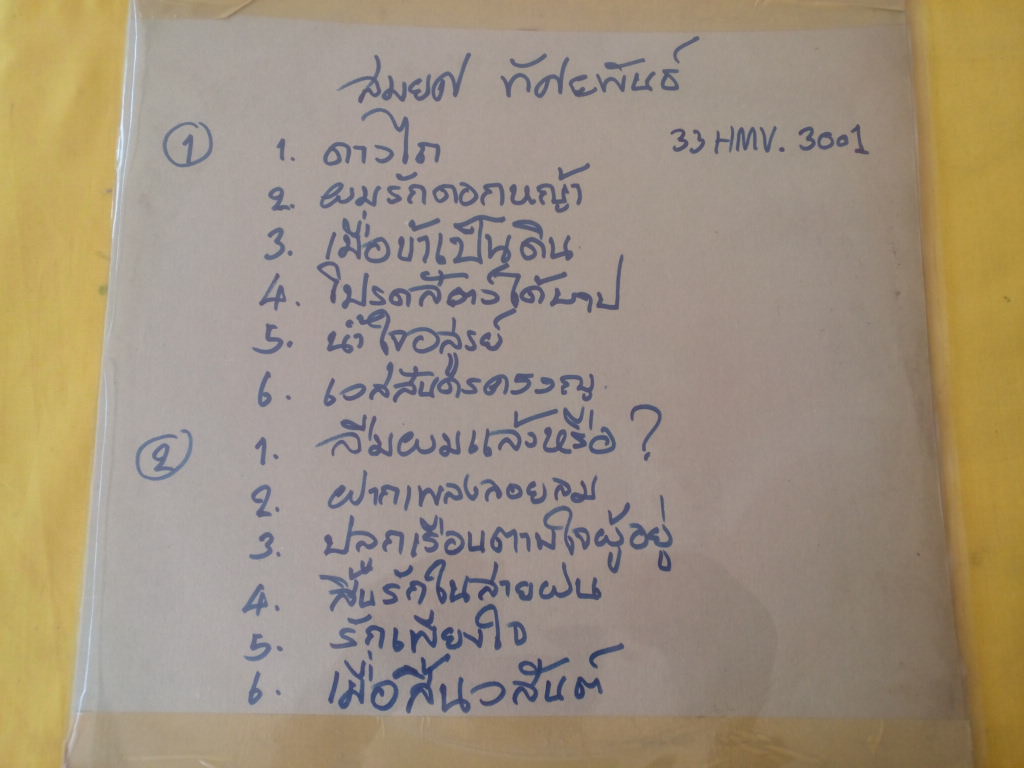 สมยศ ทัศนพันธ์
1 1. ดาวไถ 33 HMV. 3001
2. ผมรักดอกหญ้า
3. เมื่อข้าเป็นดิน
4. โปรดสัตว์ได้บาป
5. น้ำใจอสูรย์
6. เวสสันดรครวญ
2 1. ลืมผมแล้วหรือ ?
2. ฝากเพลงลอยลม
3. ปลูกเรือนตามใจผู้อยู่
4. สิ้นรักในสายฝน
5. รักเพียงใจ
6. เมื่อสิ้นวสันต์